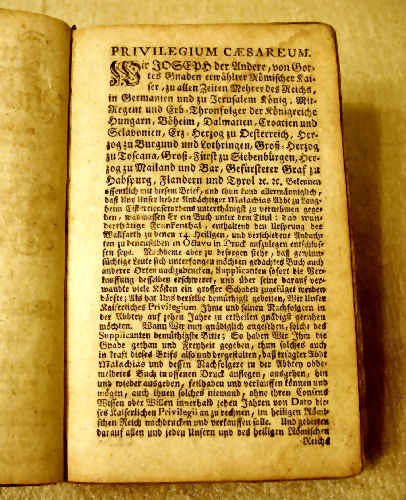 PRIVILEGIUM CÆSAREUM.
Wir JOSEPH der Andere, von Got-
tes Gnaden erwählter Römischer Kai-
ser, zu allen Zeiten Mehrer des Reichs,
in Germanien und zu Jerusalem König, Mit-
Regent und Erb-Thronfolger der Königreiche
Hungarn, Böheim, Dalmatien, Croatien und
Sclavonien, Erz-Herzog zu Oesterreich, Her-
zog zu Burgund und Lothringen, Groß-Herzog
zu Toscana, Groß-Fürst zu Siebenbürgen, Her-
zog zu Mailand und Bar, Gefürsteter Graf zu
Habspurg, Flandern und Tyrol ꝛc. ꝛc. Bekennen
öffentlich mit diesem Brief, und thun kund allermänniglich,
daß Uns Unser lieber Andächtiger Malachias Abbt zu Lang-
heim Cistercienserordens unterthänigst zu vernehmen gege-
ben, wasmassen Er ein Buch unter dem Titul: das wun-
derthätige Frankenthal, enthaltend den Ursprung des
Wallfarth zu denen 14. Heiligen, und verschiedene Andach-
ten zu denenselben in Octavo in Druck auszulegen entschlos-
sen seye. Nachdeme aber zu besorgen stehe, daß gewinn-
süchtige Leute sich unterfangen möchten gedachtes Buch auch
anderer Orten nachzudrucken, Supplicanten sofort die Ver-
kauffung desselben erschweret, und über seine darauf ver-
wandte viele Kösten ein grosser Schaden zugefüget werden
dörfte; Als hat Uns derselbe demüthigst gebetten, Wir Unser
Kaiserliches Privilegium Ihme und seinen Nachfolgern in
der Abbtey auf zehen Jahre zu ertheilen gnädigst geruhen
möchten. Wann Wir nun gnädiglich angesehen, solche des
Supplicanten demüthigste Bitte; So haben Wir Ihm die
Gnade gethan und Freyheit gegeben, thun solches auch
in kraft dieses Briefs also und dergestalten, daß ersagter Abbt
Malachias und dessen Nachfolgere in der Abbtey obbe-
meldetes Buch in offenen Druck auflegen, ausgehen, hin
und wieder ausgeben, feilhaben und verkauffen können und
mögen, auch ihnen solches niemand, ohne ihren Consens
Wissen oder Willen innerhalb zehen Jahren von Dato die-
ses Kaiserlichen Privilegii an zu rechnen, im heiligen Römi-
schen Reich nachdrucken und verkauffen solle. Und gebieten
darauf allen und jeden Unsern und des heiligen Römischen
Reichs